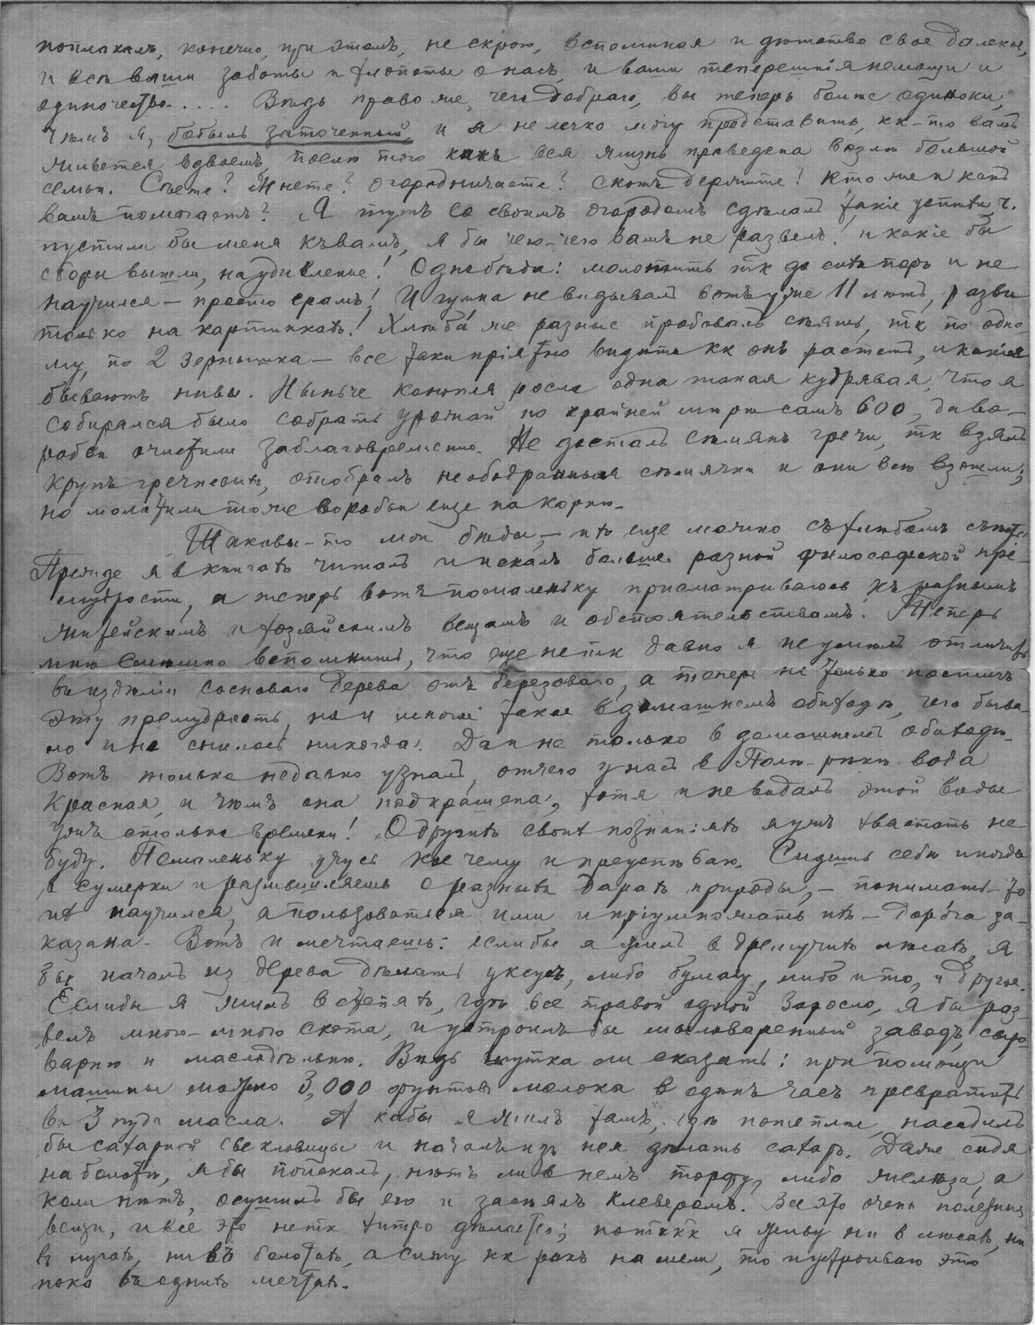 поплакалъ, конечно, при этомъ, не скрою, вспоминая и дѣтство свое далекое,
и всѣ ваши заботы и хлопоты о насъ, и ваши теперешнія немощи и
одиночество.... Вѣдь право же, чего добраго, вы теперь болѣе одиноки,
чѣмъ я, бобыль заточенный, и я не легко могу представить, кк-то вамъ
живется вдвоемъ, послѣ того какъ вся жизнь проведена возлѣ большой
семьи. Сѣете? Жнете? Огородничаете? Скотъ держите? Кто же и какъ
вамъ помогаетъ? А тутъ со своимъ огородомъ сдѣлалъ такіе успѣхи ч.
пустили бы меня къ вамъ, я бы чего-чего вамъ не развелъ! и какіе бы
сборы вышли, на удивленье! Одна бѣда: молотить тк до сихъ поръ и не
научился — просто срамъ! И гумна не видывалъ вотъ уже 11 лѣтъ, развѣ
только на картинкахъ! Хлѣба же разные пробовалъ сѣять, тк по одно-
му, по 2 зернышка — все таки пріятно видѣть кк онъ растетъ, и какія
бываютъ нивы. Нынче конопля росла одна такая кудрявая, что я
собирался было собрать урожай по крайней мѣрѣ самъ 600, да во-
робьи очистили заблаговременно. Не досталъ сѣмянъ гречи, тк взялъ
крупъ гречневыхъ, отобралъ неободранныя сѣмячки и они всѣ взошли,
но молотили тоже воробьи еще на корню.
Таковы-то мои бѣды,
Прежде я в книгахъ читалъ и искалъ больше разной философской пре-
мудрости, а теперь вотъ помаленьку присматриваюсь къ разнымъ
житейскимъ и хозяйскимъ вещамъ и обстоятельствамъ. Теперь
мнѣ смѣшно вспомнить, что еще не тк давно я не умѣлъ отличить
въ издѣліи сосноваго дерева отъ березоваго, а теперь не только постигъ
эту премудрость, но и многое такое в домашнемъ обиходѣ, чего быва-
ло и не снилось никогда. Да и не только в домашнемъ обиходѣ.
Вотъ только недавно узналъ, отчего у насъ в Полѣ-рѣкѣ вода
красная, и чѣмъ она подкрашена, хотя и не видалъ этой воды
ужъ столько времени! О другихъ своихъ познаніяхъ я ужъ хвастать не
буду. Помаленьку учусь кое чему и преуспѣваю. Сидишь себѣ иногда
в сумерки и размышляешь о разныхъ дарахъ природы, — понимать-то
ихъ научился, а пользоваться ими и пріумножать ихъ — дорога за-
казана. Вотъ и мечтаешь: если бы я жилъ в дремучихъ лѣсахъ, я
бы началъ из дерева дѣлать уксусъ, либо бумагу, либо и то, и другое.
Если бы я жилъ в степяхъ, гдѣ все травой одной заросло, я бы раз-
велъ много-много скота, и устроилъ бы мыловаренный заводъ, сыро-
варню и маслодѣльню. Вѣдь шутка ли сказать: при помощи
машины можно 3,000 фунтовъ молока в одинъ часъ превратить
въ 3 пуда масла. А кабы я жилъ тамъ, гдѣ потеплѣе, насадилъ
бы сахарной свекловицы и началъ изъ нея дѣлать сахаръ. Даже сидя
на болотѣ, я бы поискалъ, нѣтъ ли в немъ торфу, либо желѣза, а
коли нѣтъ, осушилъ бы его и засѣялъ клеверомъ. Все это очень полезныя
вещи, и все это не тк хитро дѣлается; но ткк я живу ни в лѣсахъ, ни
в лугахъ, ни въ болотахъ, а сижу кк ракъ на мели, то и устроиваю это
пока въ однихъ мечтахъ.